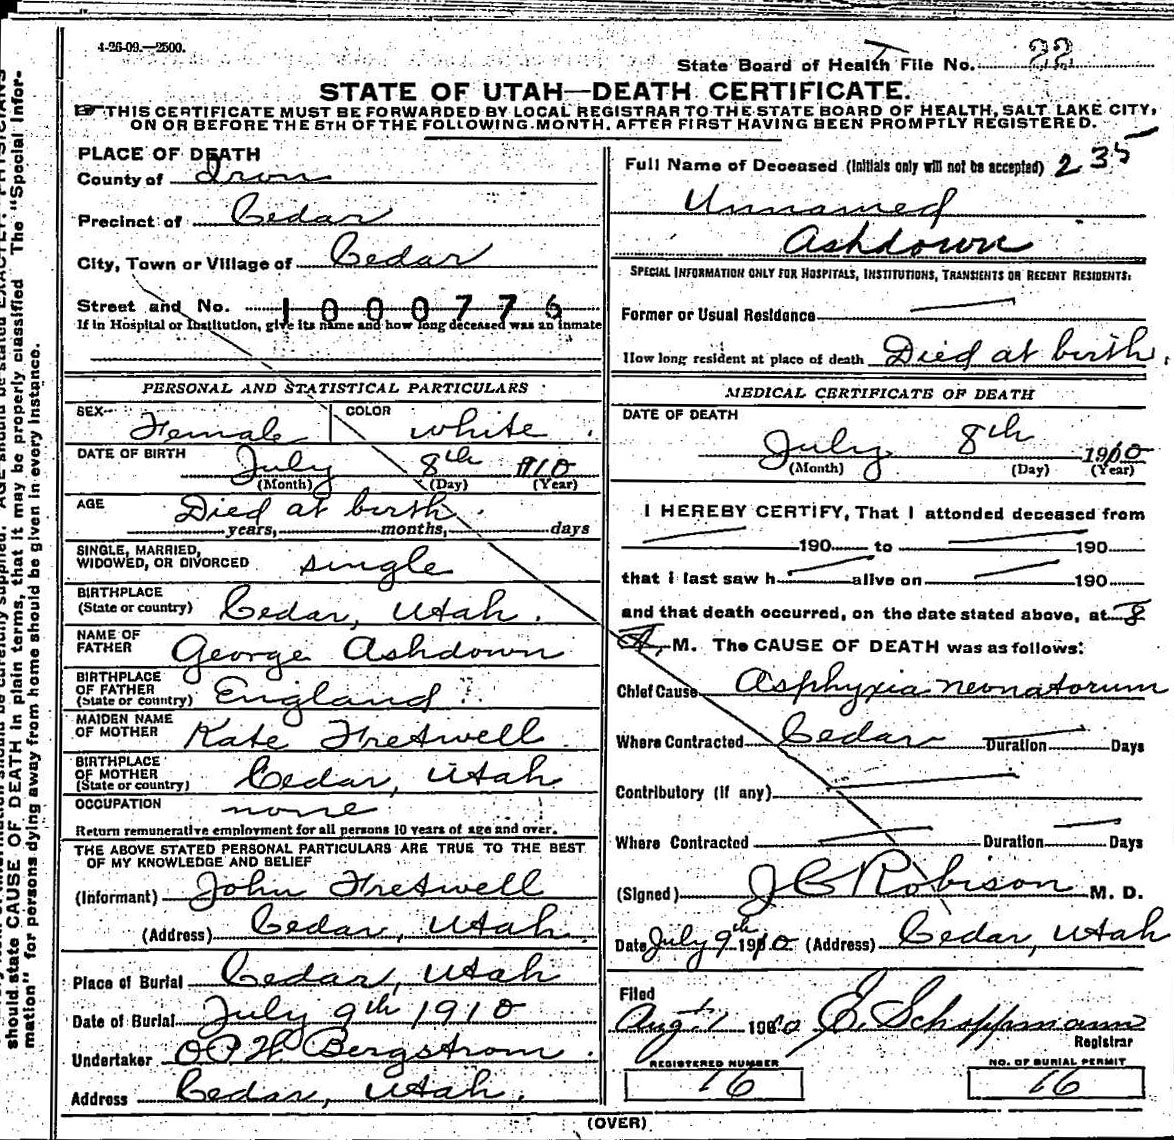 4-26-09.—2500.
State Board of Health File No. 22
STATE OF UTAH—DEATH CERTIFICATE.
THIS CERTIFICATE MUST BE FORWARDED BY LOCAL REGISTRAR TO THE STATE BOARD OF HEALTH, SALT LAKE CITY,
ON OR BEFORE THE 5TH OF THE FOLLOWING MONTH, AFTER FIRST HAVING BEEN PROMPTLY REGISTERED.
PLACE OF DEATH
County of Iron
Precinct of Cedar
City, Town or Village of Cedar
Street and No. 1000776
If in Hospital or Institution, give its name and how long deceased was an inmate
PERSONAL AND STATISTICAL PARTICULARS
SEX Female COLOR white.
DATE OF BIRTH July 8th 1910
(Month) (Day) (Year)
AGE Died at birth.
years, months, days
SINGLE, MARRIED,
WIDOWED, OR DIVORCED single
BIRTHPLACE
(State or country) Cedar, Utah.
NAME OF
FATHER George Ashdown
BIRTHPLACE
OF FATHER
(State or country) England
MAIDEN NAME
OF MOTHER Kate Fretwell
BIRTHPLACE
OF MOTHER
(State or country) Cedar, Utah
OCCUPATION none
Return remunerative employment for all persons 10 years of age and over.
THE ABOVE STATED PERSONAL PARTICULARS ARE TRUE TO THE BEST
OF MY KNOWLEDGE AND BELIEF
(Informant) John Fretwell
(Address) Cedar, Utah.
Place of Burial Cedar, Utah
Date of Burial July 9th 1910
Undertaker Bergstrom.
Address Cedar, Utah.
Full Name of Deceased (Initials only will not be accepted) 235
Unnamed
Ashdown
SPECIAL INFORMATION ONLY FOR HOSPITALS, INSTITUTIONS, TRANSIENTS OR RECENT RESIDENTS:
Former or Usual Residence
How long resident at place of death Died at birth.
MEDICAL CERTIFICATE OF DEATH
DATE OF DEATH
July 8th 1910
(Month) (Day) (Year)
I HEREBY CERTIFY, That I attonded deceased from
190 to 190
that i last saw h alive on 190
and that death occurred, on the date stated above, at 8
A. M. The CAUSE OF DEATH was as follows:
Chief Cause Asphyxia neonatorum
Where Contracted Cedar Duration Days
Contributory (if any)
Where Contracted Duration Days
(Signed) J C Robison M. D.
Date July 9th 1910 (Address) Cedar, Utah
Filed
Aug. 1 1910 E. Schoppmann
Registrar
REGISTERED NUMBER
16
NO. OF BURIAL PERMIT
16
(OVER)
should state CAUSE OF DEATH in plain terms, that it may be properly classified The "Special Infor-
mation" for persons dying away from home should be given in every instance.